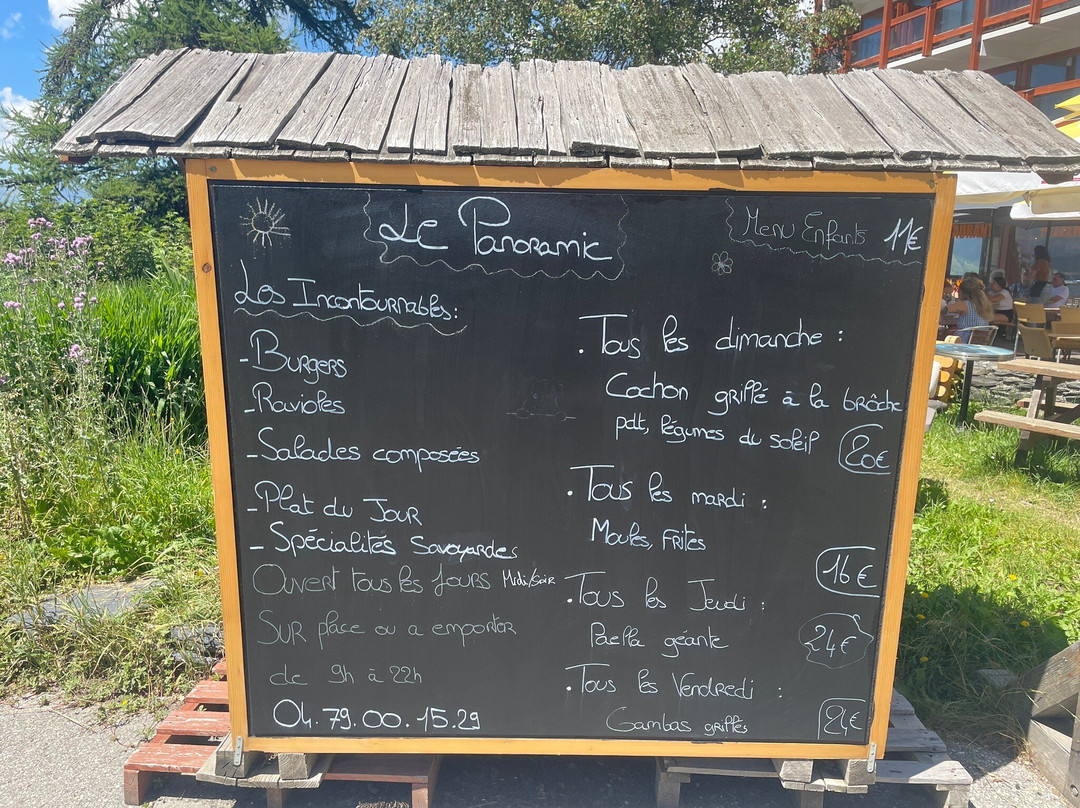 Le Panoramic
Menu Enfants 11€
Les Incontournables:
- Burgers
- Ravioles
- Salades composées
- Plat du Jour
- Spécialités Savoyardes
Ouvert tous les jours Midi/Soir
Sur place ou a emporter
de 9h à 22h
04.79.00.15.29
. Tous les dimanche :
Cochon grillé à la brôche
pdt, légumes du soleil 20€
. Tous les mardi :
Moules, Frites
16€
. Tous les Jeudi :
Paella géante 24€
. Tous les Vendredi :
Gambas grillés 24€